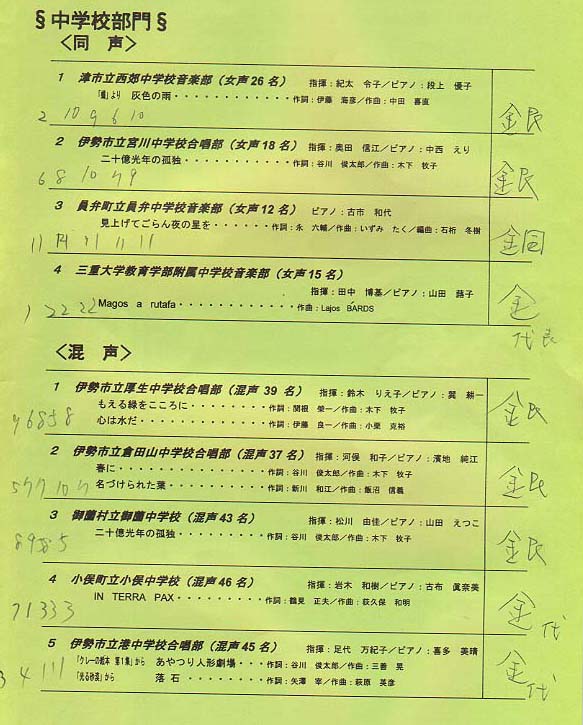 §中学校部門§
〈同 声〉
1 津市立西郊中学校音楽部（女声26名） 指揮：紀太 令子／ピアノ：段上 優子
「蝶」より 灰色の雨・・・・・・・・・・・・・作詞：伊藤 海彦／作曲：中田 喜直
2 10 9 6 10
2 伊勢市立宮川中学校合唱部（女声18名） 指揮：奥田 信江／ピアノ：中西 えり
二十億光年の孤独・・・・・・・・・・・・作詞：谷川 俊太郎／作曲：木下 牧子
6 8 10 7 9
3 員弁町立員弁中学校音楽部（女声12名） ピアノ：古市 和代
見上げてごらん夜の星を・・・・・・・作詞：永 六輔／作曲：いずみ たく／編曲：石桁 冬樹
金銅
11 11 11 11
4 三重大学教育学部附属中学校音楽部（女声15名）
指揮：田中 博基／ピアノ：山田 蕗子
Magos a rutafa・・・・・・・・・・・・作曲：Lajos BÁRDS
金
1 2 2 2 2
代表
〈混 声〉
1 伊勢市立厚生中学校合唱部（混声 39 名） 指揮：鈴木 りえ子／ピアノ：巽 耕一
もえる緑をこころに・・・・・・・・作詞：関根 榮一／作曲：木下 牧子
心は水だ・・・・・・・・・・・・・作詞：伊藤 良一／作曲：小栗 克裕
6 8 5 8
2 伊勢市立倉田山中学校合唱部（混声37名） 指揮：河俣 和子／ピアノ：濱地 純江
春に・・・・・・・・・・・・・・・作詞：谷川 俊太郎／作曲：木下 牧子
名づけられた葉・・・・・・・・・・作詞：新川 和江／作曲：飯沼 信義
5 7 7 10 7
3 御薗村立御薗中学校（混声43名） 指揮：松川 由佳／ピアノ：山田 えつこ
二十億光年の孤独・・・・・・・・・作詞：谷川 俊太郎／作曲：木下 牧子
8 9 5
4 小俣町立小俣中学校（混声46名） 指揮：岩木 和樹／ピアノ：古布 眞奈美
IN TERRA PAX・・・・・・・・・作詞：鶴見 正夫／作曲：荻久保 和明
金代
7 1 3 3 3
5 伊勢市立港中学校合唱部（混声45名） 指揮：足代 万紀子／ピアノ：喜多 美晴
「クレーの絵本 第1集」から あやつり人形劇場・・・作詞：谷川 俊太郎／作曲：三善 晃
金代
3 4 1 1 1
「光る砂漠」から 落 石・・・・・・・・作詞：矢澤 宰／作曲：萩原 英彦